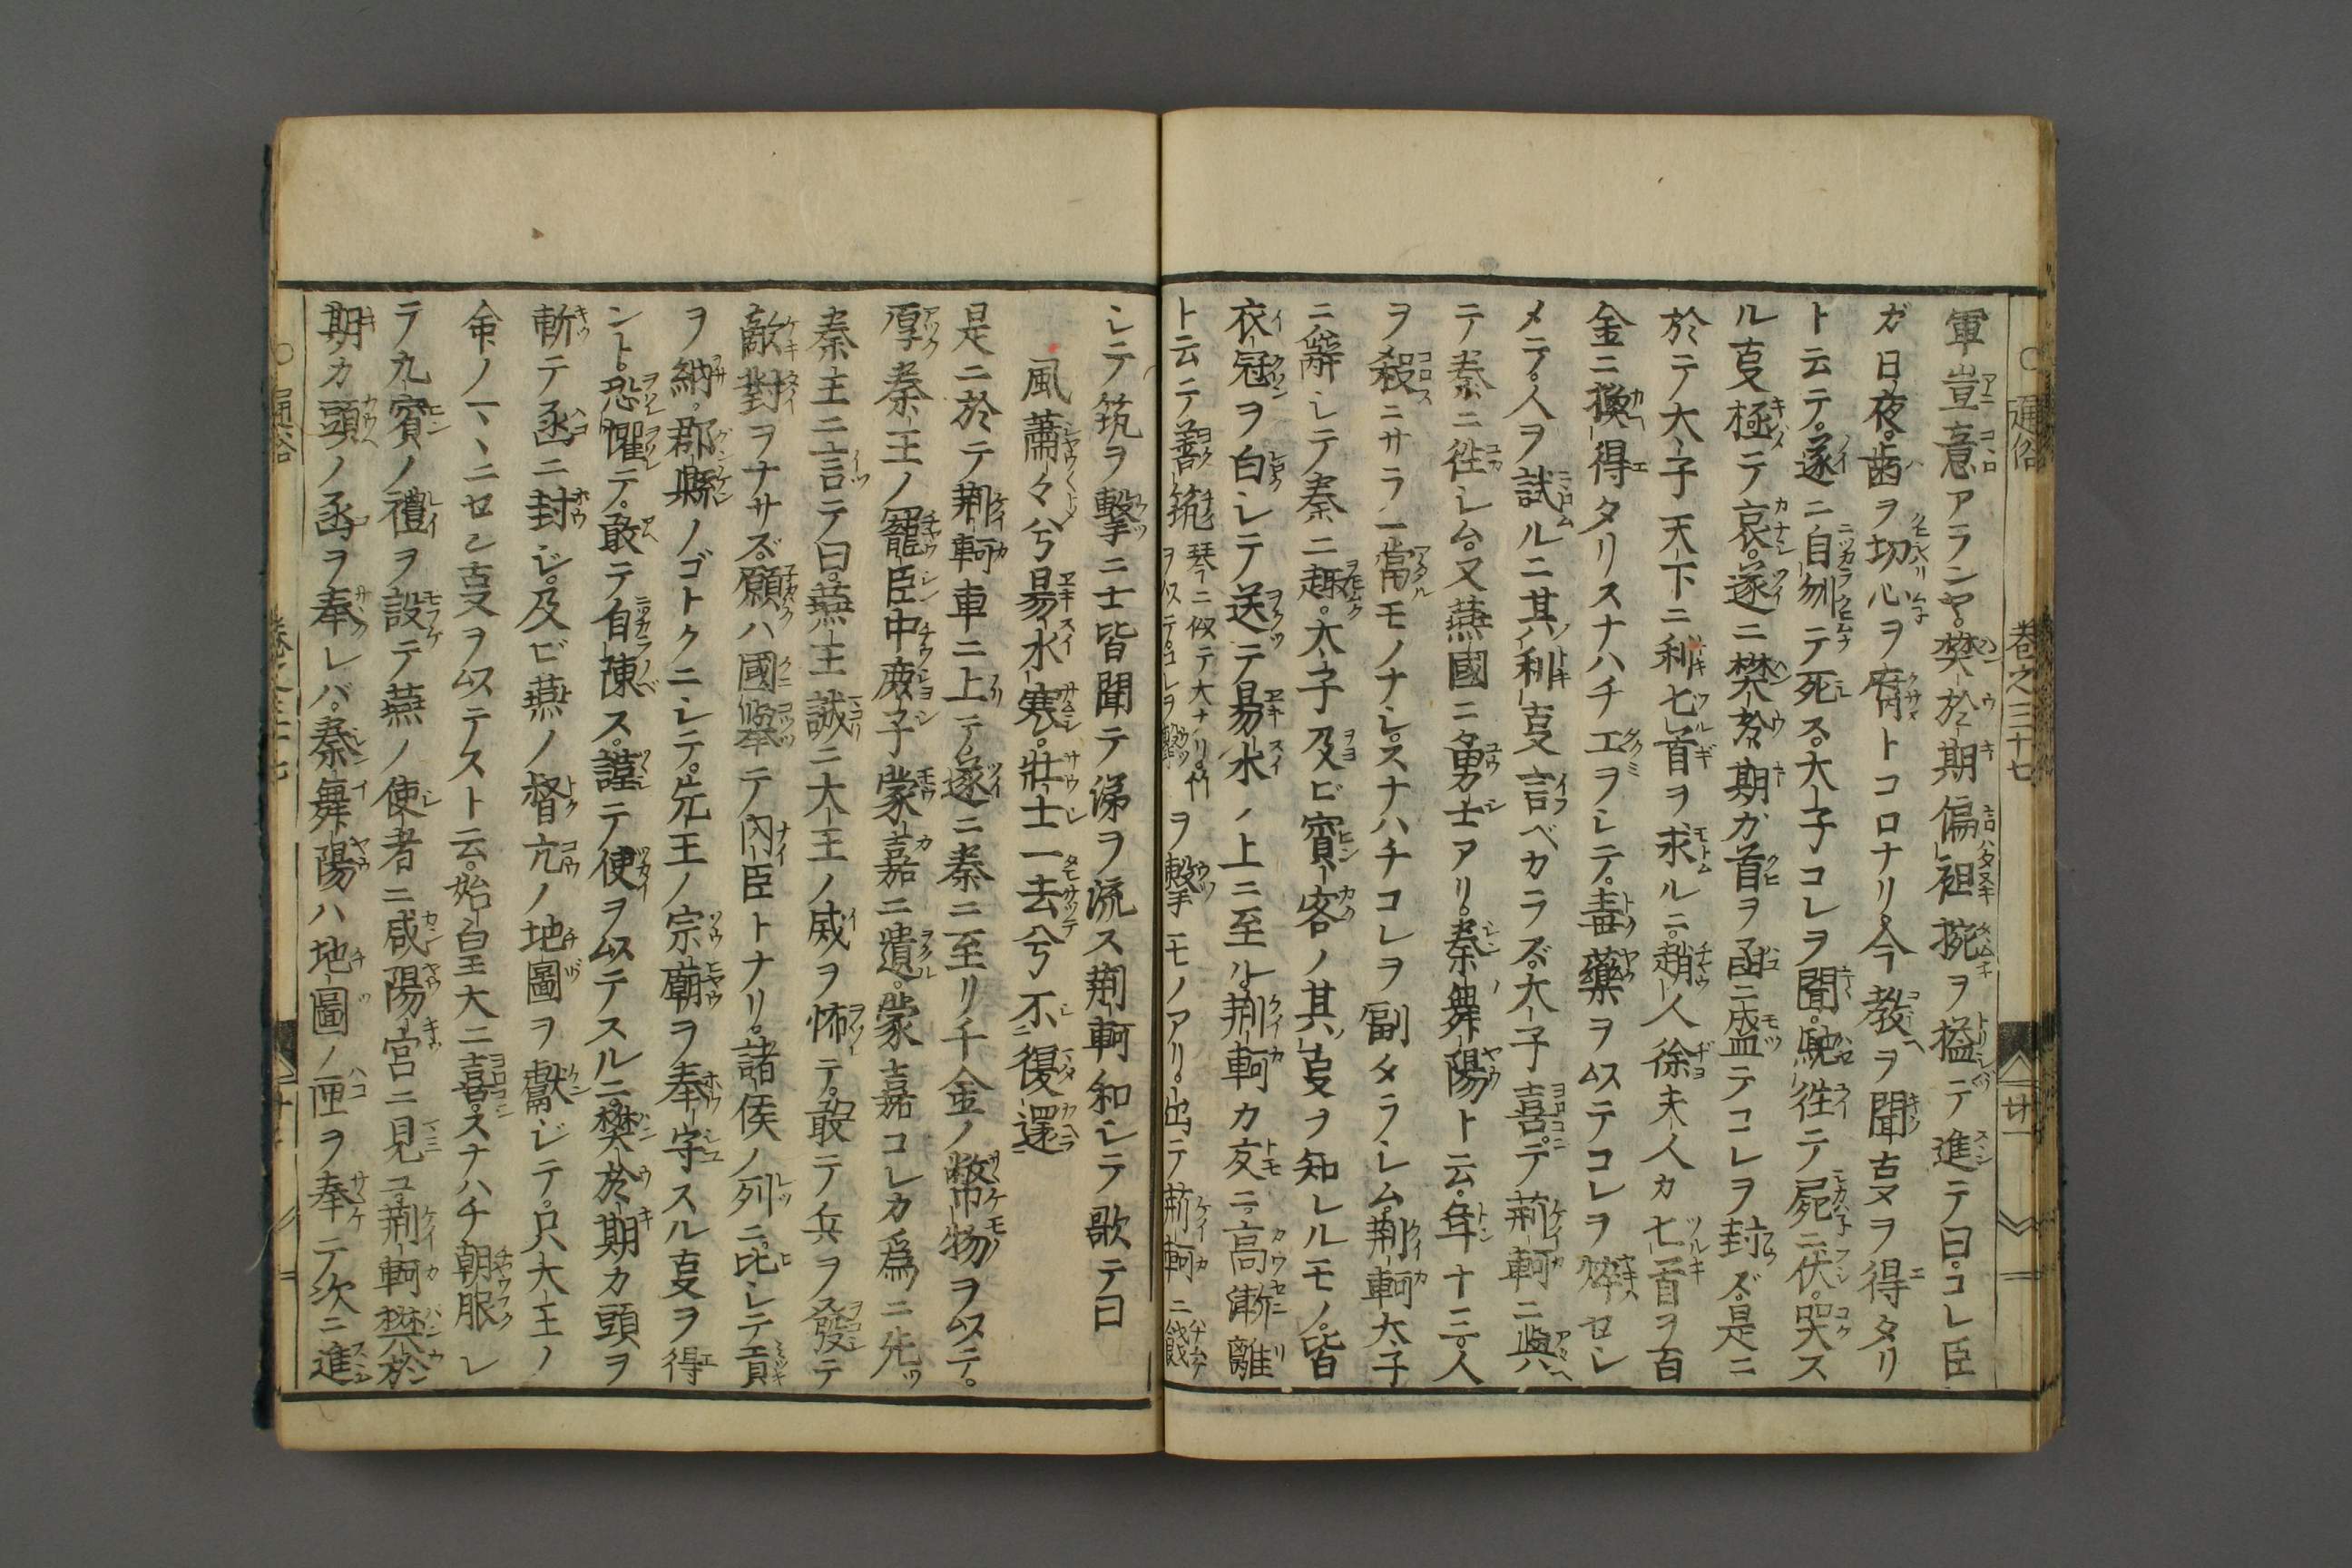 通俗 卷之三十七 廿一
軍豈意アランヤ。樊於期偏袒捥ヲ搤テ進テ曰。コレ臣
ガ日夜。齒ヲ切心ヲ腐トコロナリ。今教ヲ聞叓ヲ得タリ
ト云テ。遂ニ自刎テ死ス。太子コレヲ聞。馳徃テ屍ニ伏。哭ス
ル叓極テ哀。遂ニ樊於期ガ首ヲ函ニ盛テコレヲ封ズ。是ニ
於テ太子天下ニ利匕首ヲ求ルニ。趙人徐夫人カ匕首ヲ百
金ニ換得タリスナハチ工ヲシテ。毒藥ヲ以テコレヲ焠セシ
メテ。人ヲ試ルニ其利叓言ベカラズ。太子喜デ荊軻ニ與ヘ
テ秦ニ徃シム。又燕國ニ勇士アリ。秦舞陽ト云。年十三。人
ヲ殺ニサラニ當モノナシ。スナハチコレヲ副タラシム。荊軻太子
ニ辭シテ秦ニ趣。太子及ビ賓客ノ其叓ヲ知レルモノ。皆
衣冠ヲ白シテ送テ易水ノ上ニ至ル。荊軻カ友ニ。高漸離
ト云テ善筑琴ニ似テ大ナリ。竹ヲ以テ。コレヲ擊ヲ擊モノアリ。出テ荊軻ニ餞
シテ筑ヲ擊ニ士皆聞テ涕ヲ流ス荊軻和シテ歌テ曰
風蕭々兮易水寒。壯士一去兮不復還
是ニ於テ荊軻車ニ上テ。遂ニ秦ニ至リ千金ノ幣物ヲ以テ。
厚秦王ノ寵臣中庶子蒙嘉ニ遺。蒙嘉コレカ爲ニ先ツ
秦王ニ言テ曰。燕王誠ニ大王ノ威ヲ怖テ。敢テ兵ヲ發テ
敵對ヲナサズ。願ハ國舉テ内臣トナリ。諸侯ノ列ニ比シテ貢
ヲ納。郡縣ノゴトクニシテ。先王ノ宗廟ヲ奉守スル叓ヲ得
ント。恐懼テ。敢テ自陳ス。謹テ使ヲ以テスルニ。樊於期カ頭ヲ
斬テ函ニ封シ。及ビ燕ノ督亢ノ地圖ヲ獻ジテ。只大王ノ
命ノマヽニセン叓ヲ以テスト云。始皇大ニ喜。スナハチ朝服シ
テ九賓ノ禮ヲ設テ燕ノ使者ニ咸陽宮ニ見ユ。荊軻樊於
期カ頭ノ函ヲ奉レバ。秦舞陽ハ地圖ノ匣ヲ奉テ次ニ進
通俗 卷之三十七